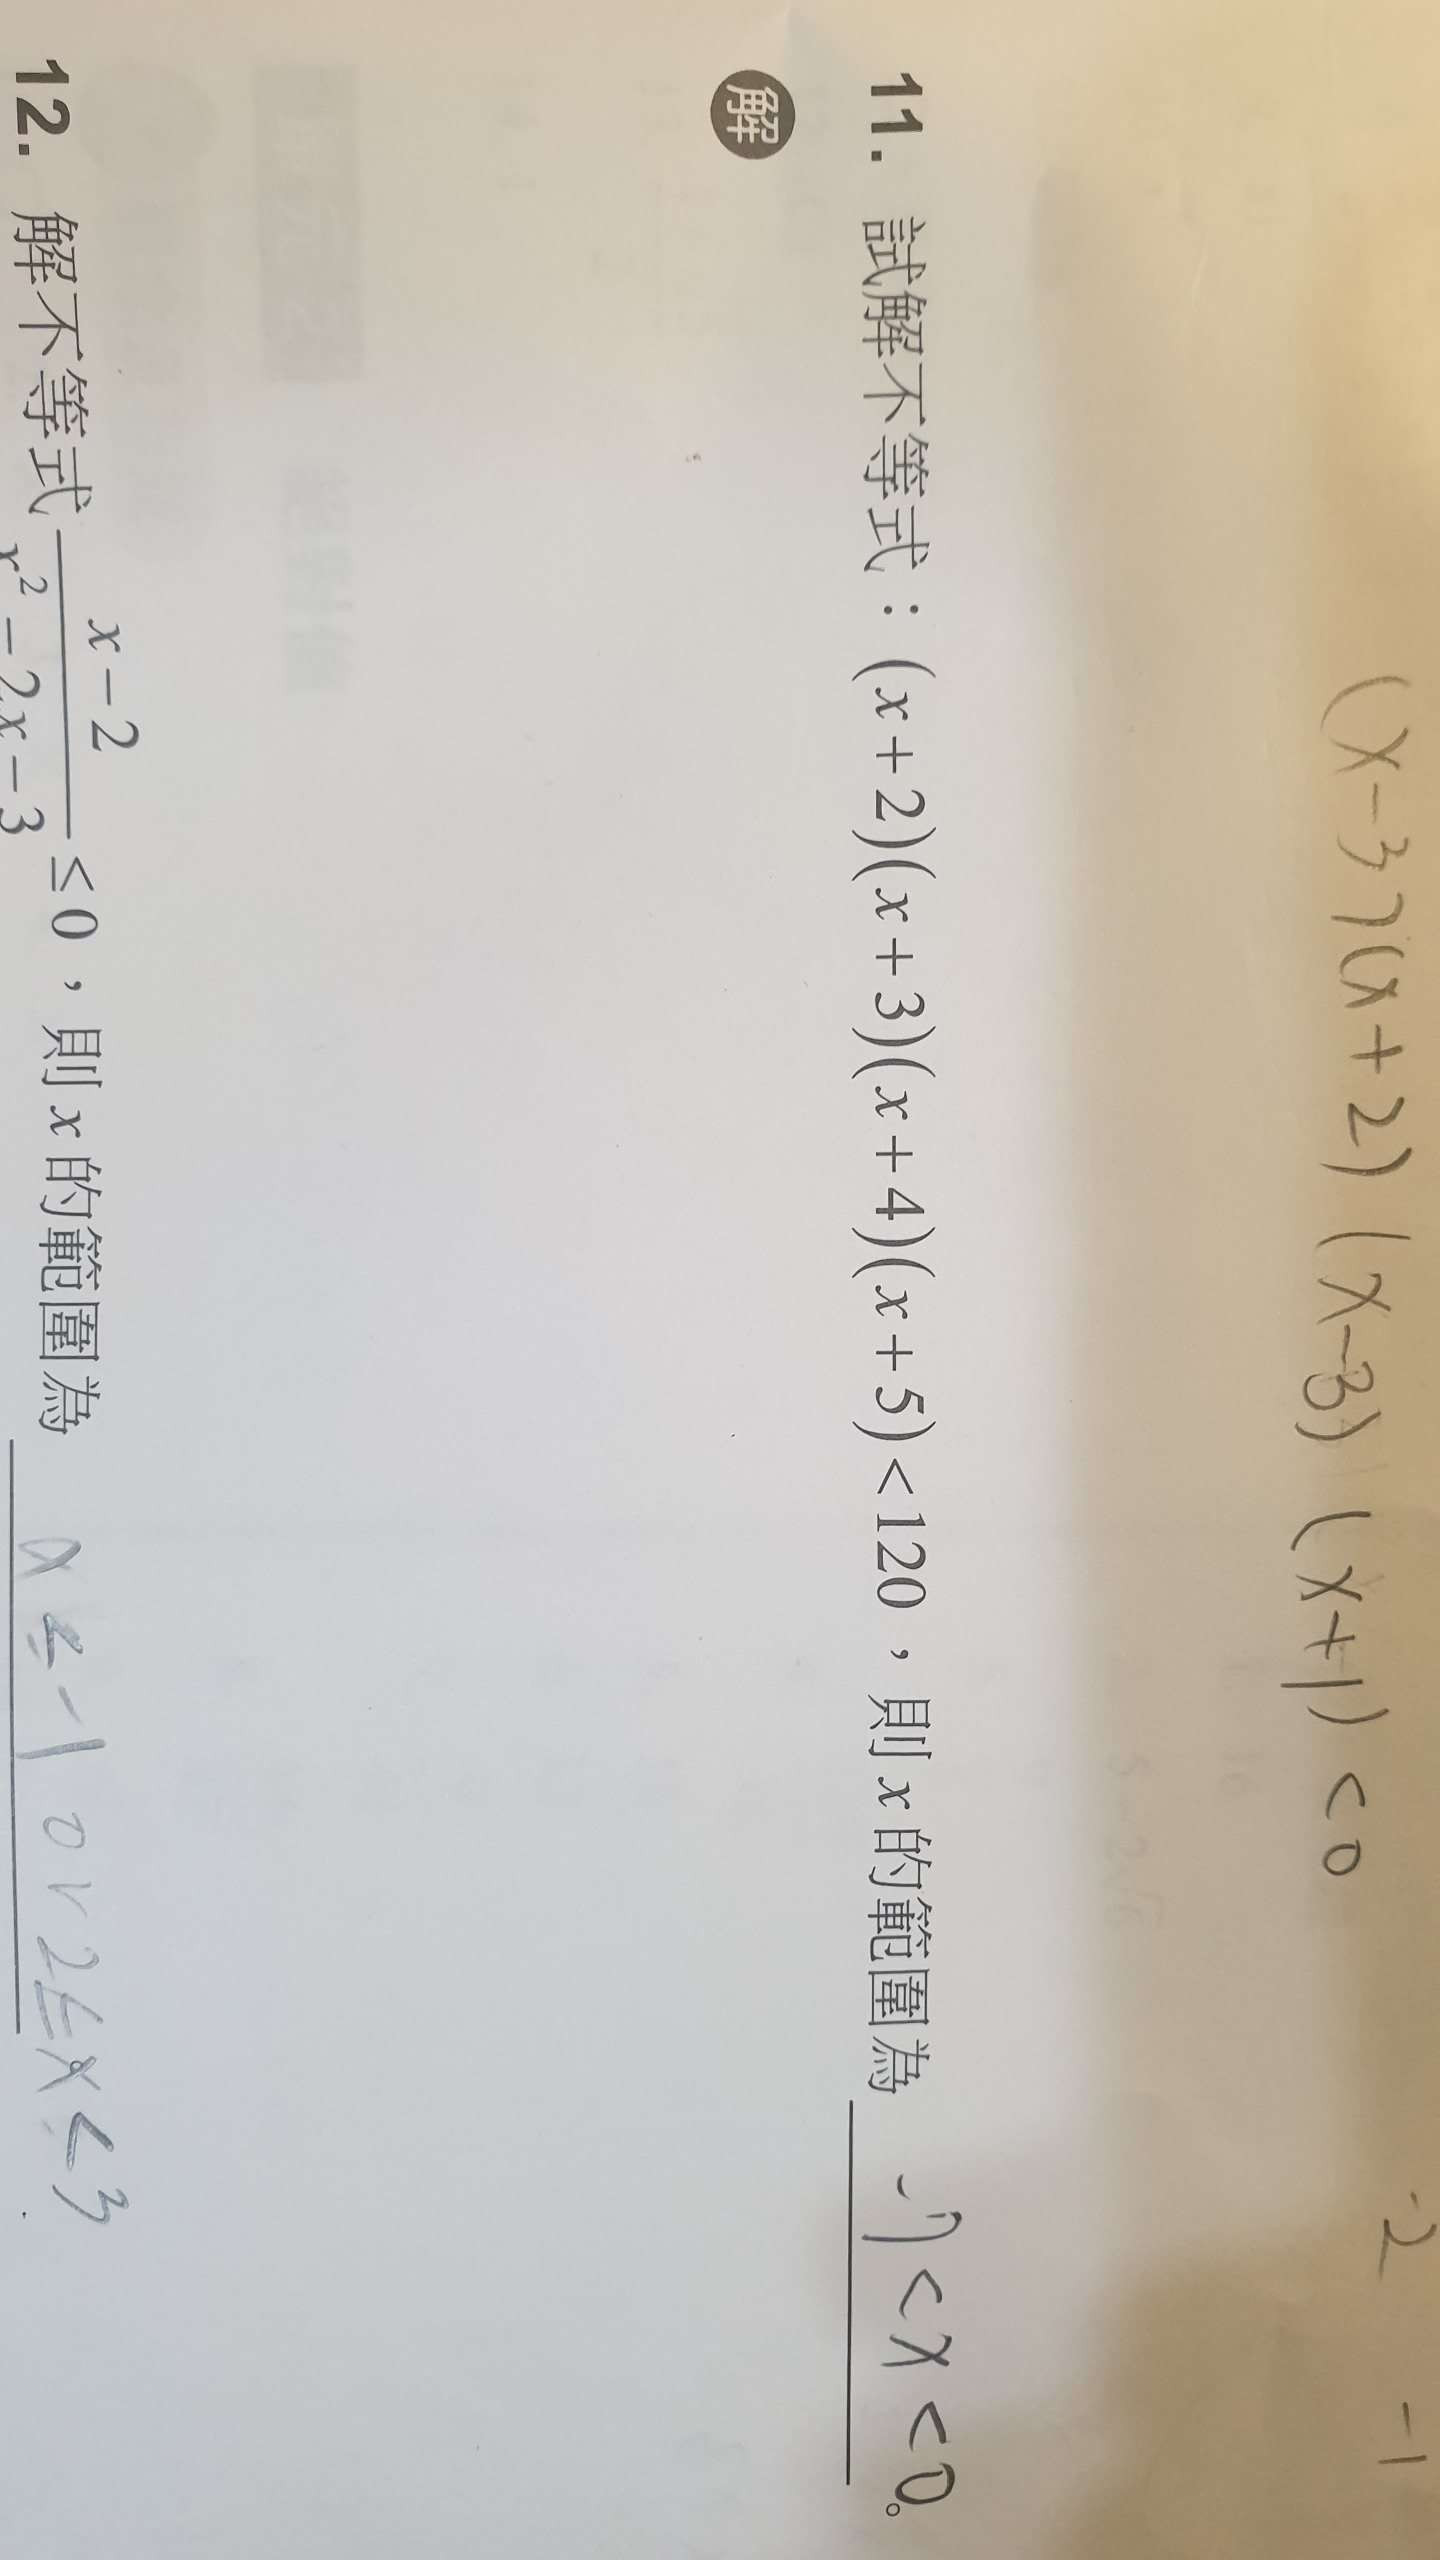 (x-3)(x+2)(x-3)(x+1)<0
-2 -1
11. 試解不等式：(x+2)(x+3)(x+4)(x+5)<120，則x的範圍為 -7<x<0。
解
12. 解不等式 x-2 / x²-2x-3 ≤0，則x的範圍為 x<-1 or 2≤x<3